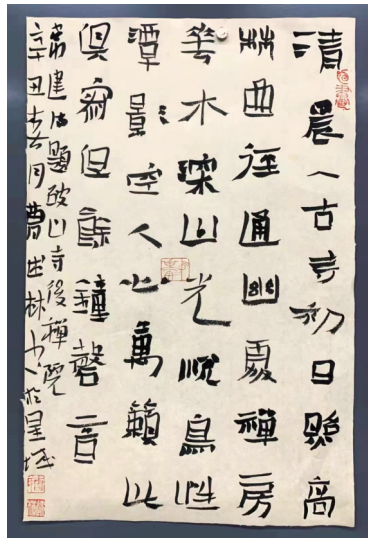 清晨入古寺初日照高
林曲徑通幽處禪房
花木深山光悅鳥性
潭影空人心萬籟此
俱寂但餘鐘磬音
常建詩題破山寺後禪院
辛丑月曹出林於星城